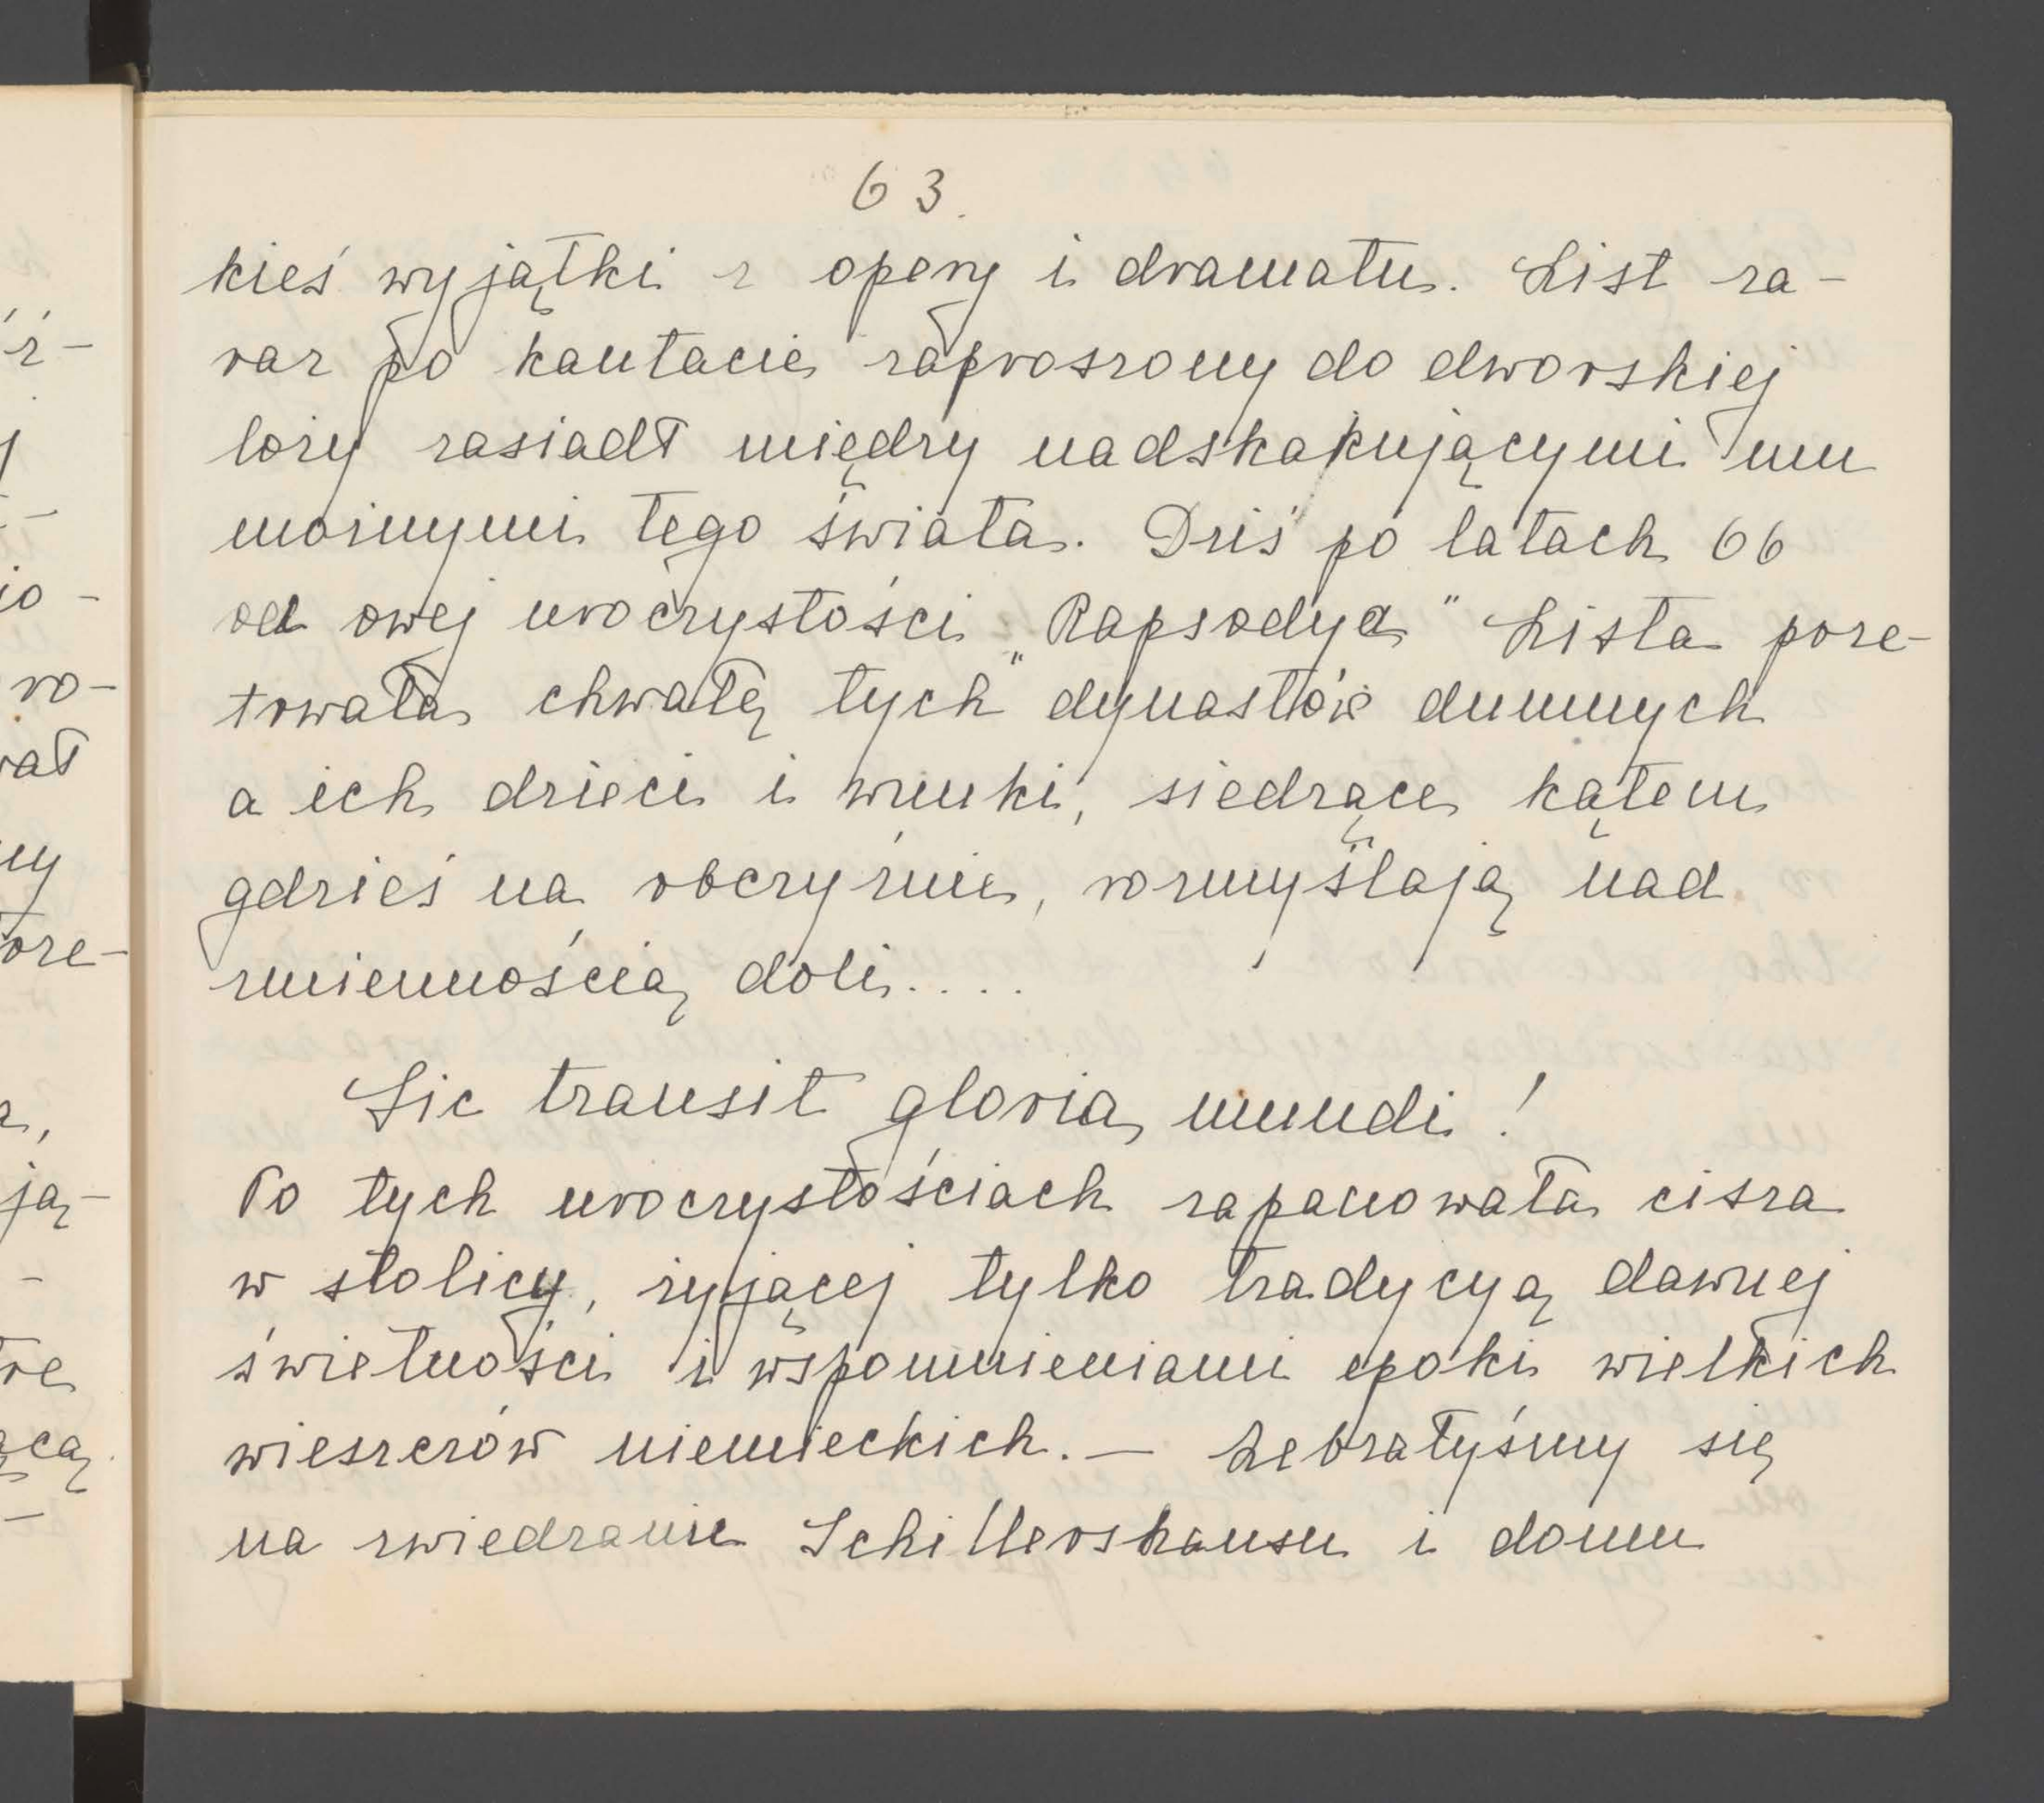 63.
kieś wyjątki z opery i dramatu. List za-
raz po kantacie zaproszony do dworskiej
loży zasiadł między nadskakującymi mu
możnymi tego świata. Dziś po latach 66
od owej uroczystości „Rapsodya" Lista prze-
trwała chwałę tych dynastów dumnych
a ich dzieci i wnuki, siedzące kątem
gdzieś na obczyźnie, rozmyślają nad
zmiennością doli....
Sic transit gloria mundi!
Po tych uroczystościach zapanowała cisza
w stolicy, żyjącej tylko tradycyą dawnej
świetności i wspomnieniami epoki wielkich
wieszczów niemieckich. — Zebrałyśmy się
na zwiedzanie Schillershausu i domu